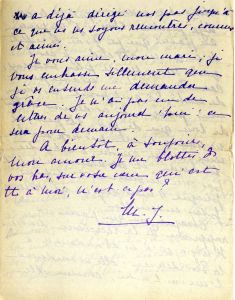 a déjà dirigé nos pas jusqu'à
ce que ns ns soyons rencontrés, connus
et aimés.
Je vous aime, mon mari, je
vous embrasse tellement que
je vs entends me demander
grâce. Je n'ai pas eu de
lettres de vs aujourd'hui : ce
sera pour demain.
A bientôt, à toujours,
mon amour. Je me blottis ds
vos bras, sur votre cœur qui est
tt à moi, n'est-ce pas ?
M. J.